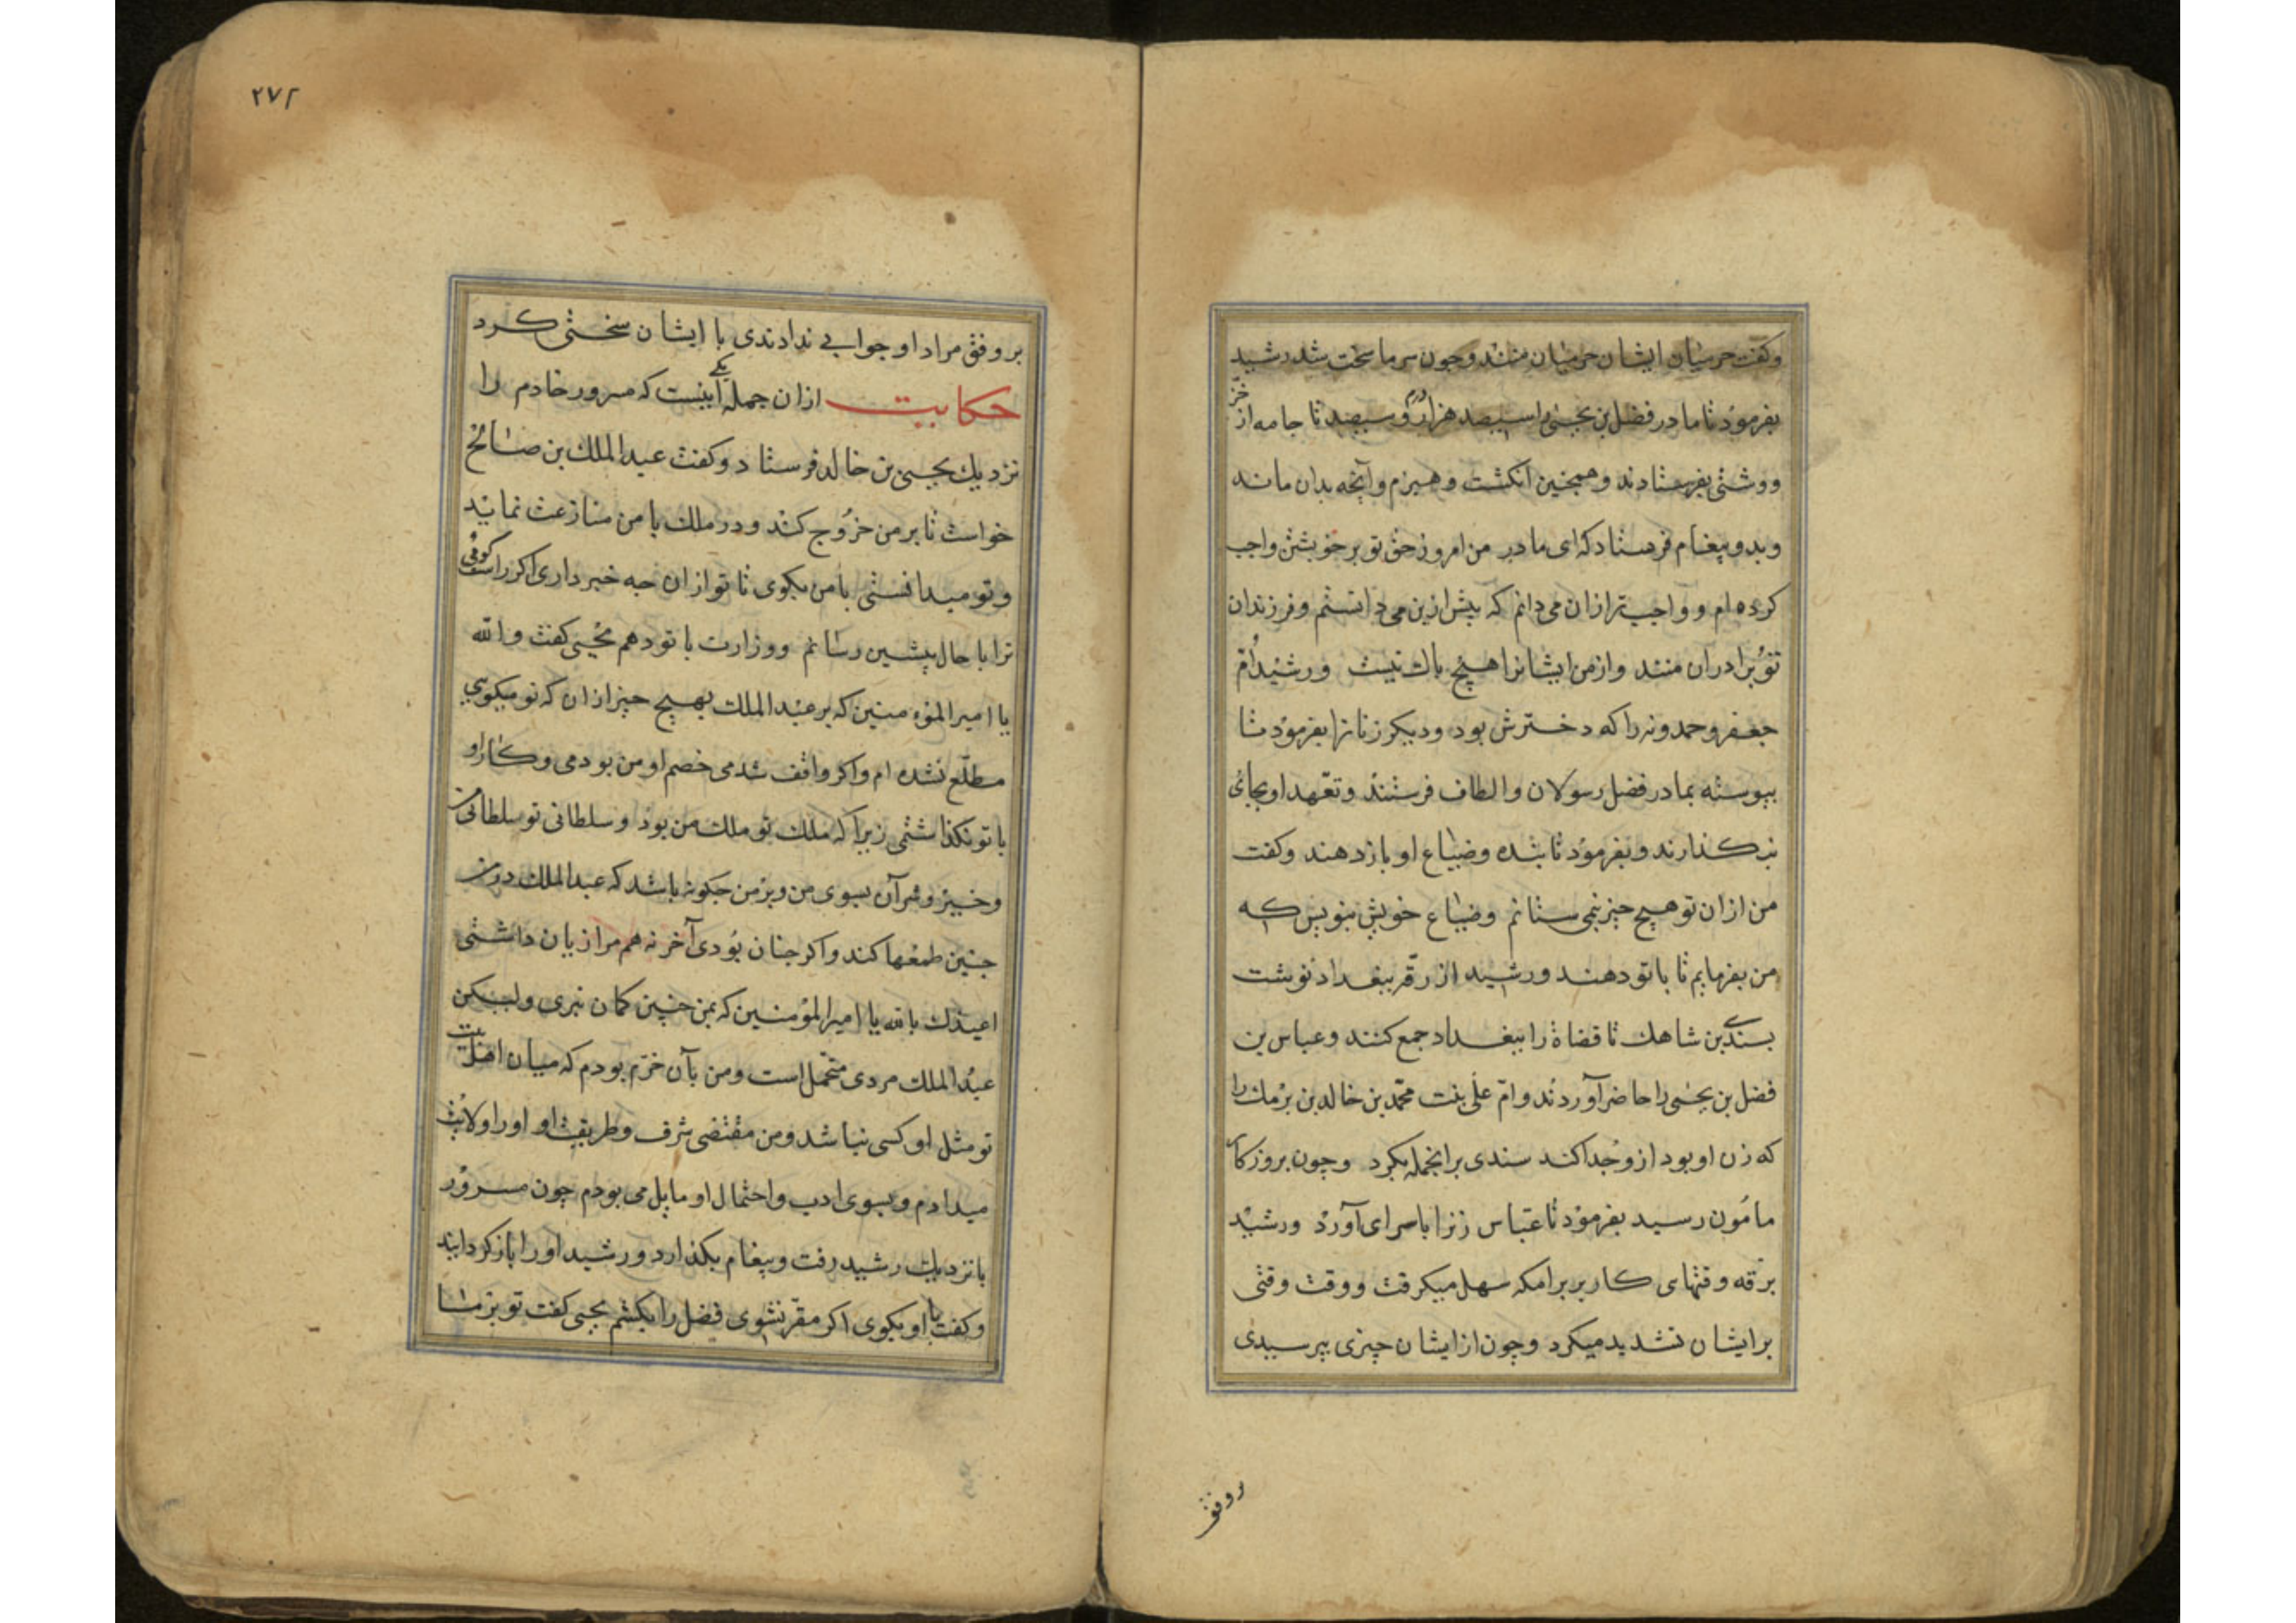 وکفت حرمیان ایشان حرمیان منند وجون سرما سخت شد رشید
بفرموذ تا مادر فضل بن یحیی را سیصد هزار درم وسیصد تا جامه از خزّ
ووشتی بفرستادند وهمجنین انکشت وهیزم وآنچه بدان ماند
وبدو پیغام فرستاد که ای مادر من امروز حق تو بر خویشتن واجب
کرده ام و واجب تر ازان می دانم که پیش ازین می دانستم وفرزندان
تو برادران منند وازمن ایشانرا هیچ باک نیست ورشید اُمّ
جعفر وحمدونه را که دخترش بود ودیکر زنانرا بفرموذ تا
پیوسته بمادر فضل رسولان والطاف فرستند وتعّهد او بجای
نکذارند وبفرموذ تا بنده وضیاع او بازدهند وکفت
من ازان تو هیچ چیز نمی ستانم وضیاع خویش بنویس که
من بفرمایم تا باتو دهند ورشید از رقّه ببغداد نوشت
بسندی بن شاهك تا قضاة را ببغداد جمع کنند وعباس بن
فضل بن یحیی را حاضر آوردند وامّ علی بنت محمّد بن خالد بن برمك را
که زن او بود ازو جدا کند سندی برانجمله بکرد وچون بروزکار
مامُون رسید بفرموذ تا عبّاس زنرا باسرای آورد ورشید
برقّه وقتهای کار بر برامکه سهل میکرفت ووقت وقتی
بر ایشان تشدید میکرد وچون از ایشان چیزی پرسیدی
بروفق
٢٧٢
بروفق مراد او جوابی ندادندی با ایشان سختی کرد
حکایت ازان جمله یکی آینست که مسرور خادم را
نزدیك یحیی بن خالد فرستاد وکفت عبدالملك بن صالح
خواست تا بر من خرُوج کند ودر ملك با من منازعت نماید
وتو میدانستی بامن بکوی تا تو ازان چه خبرداری اکر راست کوئی
ترا با حال پیشین رسانم ووزارت با تو دهم یحیی کفت والله
یا امیرالمؤمنین که بر عبدالملك بهیچ چیز ازان که تو میکویی
مطلّع نشده ام واکر واقف شدمی خصم او من بودمی وکار او
باتو نکذاشتمی زیرا که ملك تو ملك من بوذ وسلطانی تو سلطانی من
وخیر وشر آن بسوی من وبر من چکونه باشد که عبدالملك در من
چنین طمعها کند واکر چنان بُودی آخر نه هم مرا زیان داشتی
اعیذك بالله یا امیرالمؤمنین که بمن چنین کمان نبری ولیکن
عبدُالملك مردی متحمل است ومن بآن خرّم بودم که میان اهل بیت
تو مثل او کسی نباشد ومن مقتضی شرف وطریقت او اورا ولایت
میدادم وبسوی ادب واحتمال او مایل می بودم چون مسرور
با نزدیك رشید رفت وپیغام بکذارد ورشید اورا بازکردانید
وکفت با او بکوی اکر مقّر نشوی فضل را بکشم یحیی کفت تو بر ما